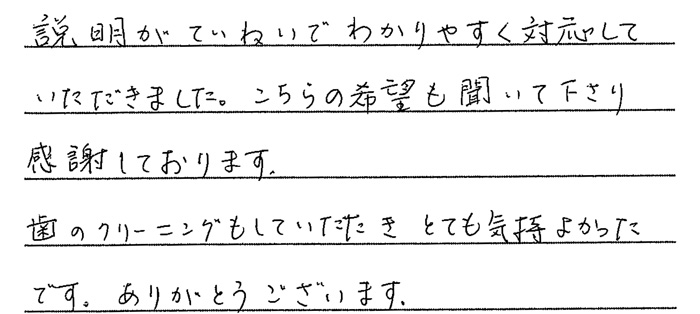 説明がていねいでわかりやすく対応して
いただきました。こちらの希望も聞いて下さり
感謝しております。
歯のクリーニングもしていただき とても気持よかった
です。ありがとうございます。